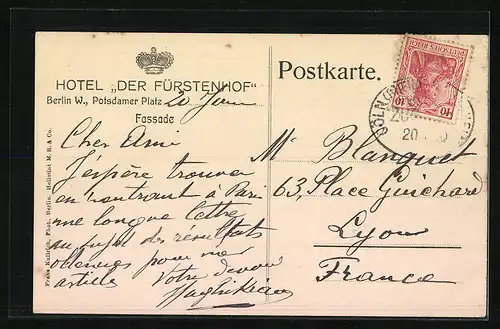 HOTEL „DER FÜRSTENHOF“
Berlin W., Potsdamer Platz
Fassade
20 Juin
Cher Ami
J'espère trouver
en rentrant à Paris
une longue lettre
au sujet des résultats
obtenus pour mes
articles
Votre dévoué
Postkarte.
DEUTSCHES REICH
10 10
CÖLN
20
Mr Blanquet
63, Place Guichard
Lyon
France
Franz Kullrich, Phot., Berlin. Hofleifst M. R. & Co.